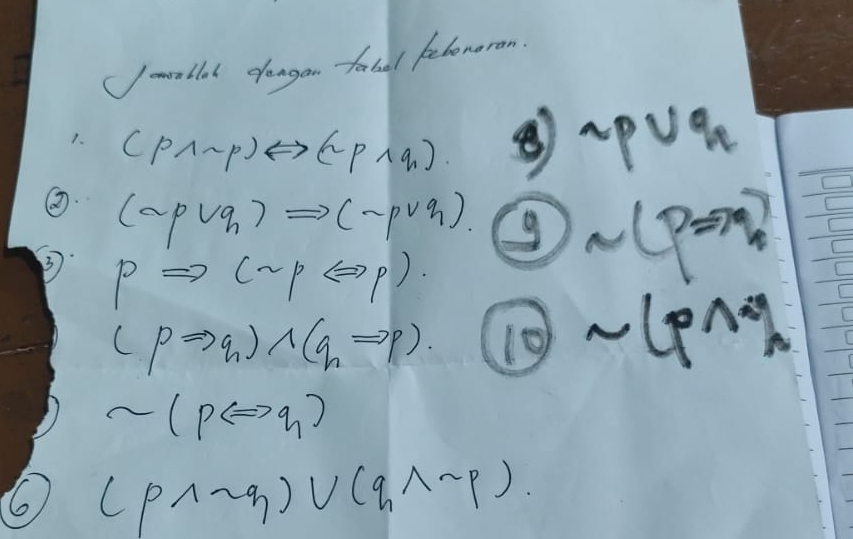 Jawablah dengan tabel kebenaran.
1. (p ∧ ~p) ⇔ (~p ∧ q).
2. (~p ∨ q) ⇒ (~p ∨ q).
3. p ⇒ (~p ⇔ p).
(p ⇒ q) ∧ (q ⇒ p).
) ~(p ⇔ q)
6 (p ∧ ~q) ∨ (q ∧ ~p).
8) ~p ∨ q
9 ~(p ⇒ q)
10 ~(p ∧ ~q